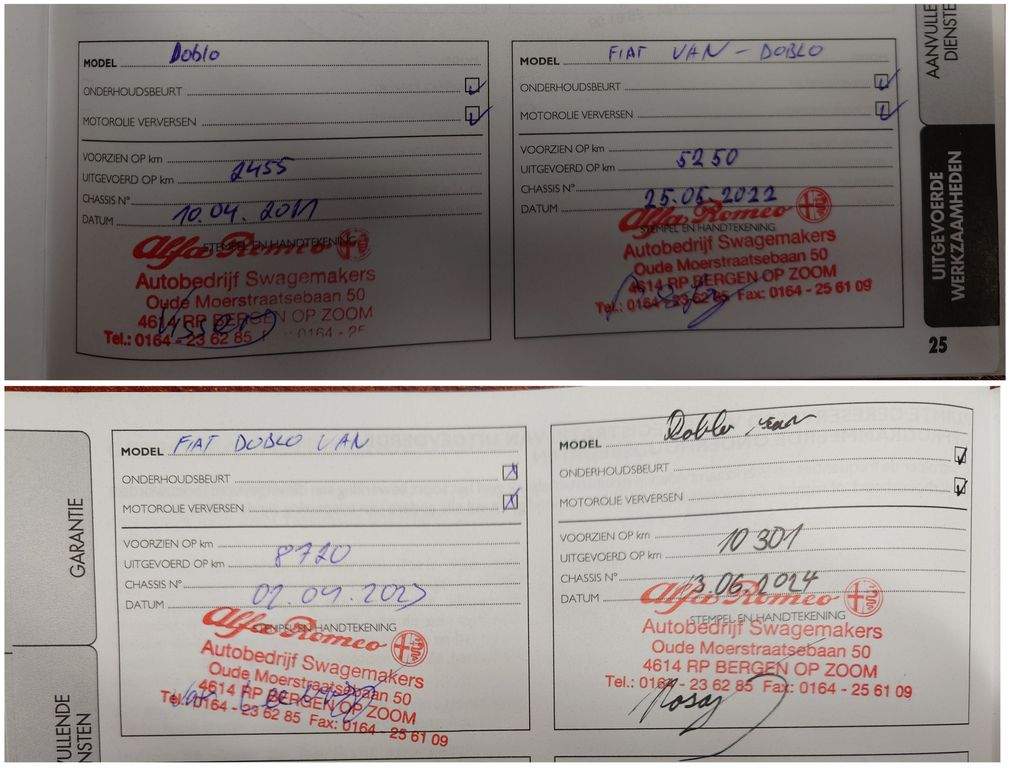 AANVULLE
DIENSTE
MODEL Doblo
ONDERHOUDSBEURT
MOTOROLIE VERVERSEN
VOORZIEN OP km
UITGEVOERD OP km 2455
CHASSIS N°
DATUM 10.04.2011
STEMPEL EN HANDTEKENING
Alfa Romeo
Autobedrijf Swagemakers
Oude Moerstraatsebaan 50
4614 RP BERGEN OP ZOOM
Tel.: 0164 - 23 62 85 F : 0164 - 25
MODEL FIAT VAN - DOBLO
ONDERHOUDSBEURT
MOTOROLIE VERVERSEN
VOORZIEN OP km
UITGEVOERD OP km 5250
CHASSIS N°
DATUM 25.05.2022
STEMPEL EN HANDTEKENING
Alfa Romeo
Autobedrijf Swagemakers
Oude Moerstraatsebaan 50
4614 RP BERGEN OP ZOOM
Tel.: 0164 - 23 62 85 Fax: 0164 - 25 61 09
UITGEVOERDE
WERKZAAMHEDEN
25
GARANTIE
VULLENDE
NSTEN
MODEL FIAT DOBLO VAN
ONDERHOUDSBEURT
MOTOROLIE VERVERSEN
VOORZIEN OP km
UITGEVOERD OP km 8720
CHASSIS N°
DATUM 02.04.2023
STEMPEL EN HANDTEKENING
Alfa Romeo
Autobedrijf Swagemakers
Oude Moerstraatsebaan 50
4614 RP BERGEN OP ZOOM
Tel.: 0164 - 23 62 85 Fax: 0164 - 25 61 09
MODEL Doblo van
ONDERHOUDSBEURT
MOTOROLIE VERVERSEN
VOORZIEN OP km
UITGEVOERD OP km 10301
CHASSIS N°
DATUM 13.06.2024
STEMPEL EN HANDTEKENING
Alfa Romeo
Autobedrijf Swagemakers
Oude Moerstraatsebaan 50
4614 RP BERGEN OP ZOOM
Tel.: 0164 - 23 62 85 Fax: 0164 - 25 61 09